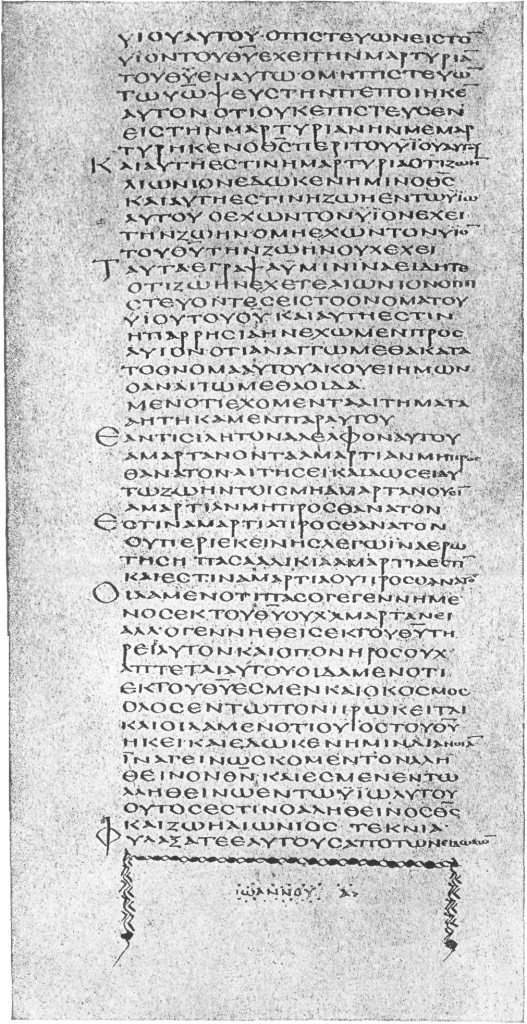 ΥΙΟΥΑΥΤΟΥ·ΟΠΙΣΤΕΥΩΝΕΙΣΤΟ̅
ΥΙΟΝΤΟΥΘ̅Υ̅ΕΧΕΙΤΗΝΜΑΡΤΥΡΙΑ̅
ΤΟΥΘ̅Υ̅ΕΝΑΥΤΩ·ΟΜΗΠΙΣΤΕΥΩ̅
ΤΩΥ̅Ω̅ΨΕΥΣΤΗΝΠΕΠΟΙΗΚΕ
ΑΥΤΟΝΟΤΙΟΥΚΕΠΙΣΤΕΥΣΕΝ
ΕΙΣΤΗΝΜΑΡΤΥΡΙΑΝΗΝΜΕΜΑΡ
ΤΥΡΗΚΕΝΟΘ̅Σ̅ΠΕΡΙΤΟΥΥΙΟΥΑΥΤΟΥ
ΚΑΙΑΥΤΗΕΣΤΙΝΗΜΑΡΤΥΡΙΑΟΤΙΖΩΗ
ΑΙΩΝΙΟΝΕΔΩΚΕΝΗΜΙΝΟΘ̅Σ̅
ΚΑΙΑΥΤΗΕΣΤΙΝΗΖΩΗΕΝΤΩΥΙΩ
ΑΥΤΟΥ ΟΕΧΩΝΤΟΝΥΙΟΝΕΧΕΙ
ΤΗΝΖΩΗΝΟΜΗΕΧΩΝΤΟΝΥΙΟ̅
ΤΟΥΘ̅Υ̅ΤΗΝΖΩΗΝΟΥΚΕΧΕΙ
ΤΑΥΤΑΕΓΡΑΨΑΥΜΙΝΙΝΑΕΙΔΗΤΕ
ΟΤΙΖΩΗΝΕΧΕΤΕΑΙΩΝΙΟΝΟΙΠΙ
ΣΤΕΥΟΝΤΕΣΕΙΣΤΟΟΝΟΜΑΤΟΥ
ΥΙΟΥΤΟΥΘ̅Υ̅·ΚΑΙΑΥΤΗΕΣΤΙΝ
ΗΠΑΡΡΗΣΙΑΗΝΕΧΩΜΕΝΠΡΟΣ
ΑΥΤΟΝ·ΟΤΙΑΝΑΙΤΩΜΕΘΑΚΑΤΑ
ΤΟΘΝΟΜΑΑΥΤΟΥΑΚΟΥΕΙΗΜΩΝ
ΟΑΝΑΙΤΩΜΕΘΑΟΙΔΑ
ΜΕΝΟΤΙΕΧΟΜΕΝΤΑΑΙΤΗΜΑΤΑ
ΑΗΤΗΚΑΜΕΝΠΑΡΑΥΤΟΥ
ΕΑΝΤΙΣΙΔΗΤΟΝΑΔΕΛΦΟΝΑΥΤΟΥ
ΑΜΑΡΤΑΝΟΝΤΑΑΜΑΡΤΙΑΝΜΗΠΡΟΣ
ΘΑΝΑΤΟΝΑΙΤΗΣΕΙΚΑΙΔΩΣΕΙΑΥ
ΤΩΖΩΗΝΤΟΙΣΜΗΑΜΑΡΤΑΝΟΥΣΙ
ΑΜΑΡΤΙΑΝΜΗΠΡΟΣΘΑΝΑΤΟΝ
ΕΣΤΙΝΑΜΑΡΤΙΑΠΡΟΣΘΑΝΑΤΟΝ
ΟΥΠΕΡΙΕΚΕΙΝΗΣΛΕΓΩΙΝΑΕΡΩ
ΤΗΣΗ ΠΑΣΑΑΔΙΚΙΑΑΜΑΡΤΙΑΕΣΤΙ
ΚΑΙΕΣΤΙΝΑΜΑΡΤΙΑΟΥΠΡΟΣΘΑΝΑΤΟ̅
ΟΙΔΑΜΕΝΟΤΙΠΑΣΟΓΕΓΕΝΝΗΜΕ
ΝΟΣΕΚΤΟΥΘ̅Υ̅ΟΥΧΑΜΑΡΤΑΝΕΙ
ΑΛΛ·ΟΓΕΝΝΗΘΕΙΣΕΚΤΟΥΘ̅Υ̅ΤΗ
ΡΕΙΑΥΤΟΝΚΑΙΟΠΟΝΗΡΟΣΟΥΧ
ΑΠΤΕΤΑΙΑΥΤΟΥΟΙΔΑΜΕΝΟΤΙ
ΕΚΤΟΥΘ̅Υ̅ΕΣΜΕΝΚΑΙΟΚΟΣΜΟΣ
ΟΛΟΣΕΝΤΩΠΟΝΗΡΩΚΕΙΤΑΙ
ΚΑΙΟΙΔΑΜΕΝΟΤΙΟΥΙΟΣΤΟΥΘ̅Υ̅
ΗΚΕΙΚΑΙΕΔΩΚΕΝΗΜΙΝΔΙΑΝΟΙΑ̅
ΙΝΑΓΕΙΝΩΣΚΟΜΕΝΤΟΝΑΛΗ
ΘΕΙΝΟΝΘ̅Ν̅·ΚΑΙΕΣΜΕΝΕΝΤΩ
ΑΛΗΘΕΙΝΩΕΝΤΩΥΙΩΑΥΤΟΥ
ΟΥΤΟΣΕΣΤΙΝΟΑΛΗΘΕΙΝΟΣΘ̅Σ̅
ΚΑΙΖΩΗΑΙΩΝΙΟΣ ΤΕΚΝΙΑ
ΦΥΛΑΞΑΤΕΕΑΥΤΟΥΣΑΠΟΤΩΝΕΙΔΩΛΩΝ
ΙΩΑΝΝΟΥ Α